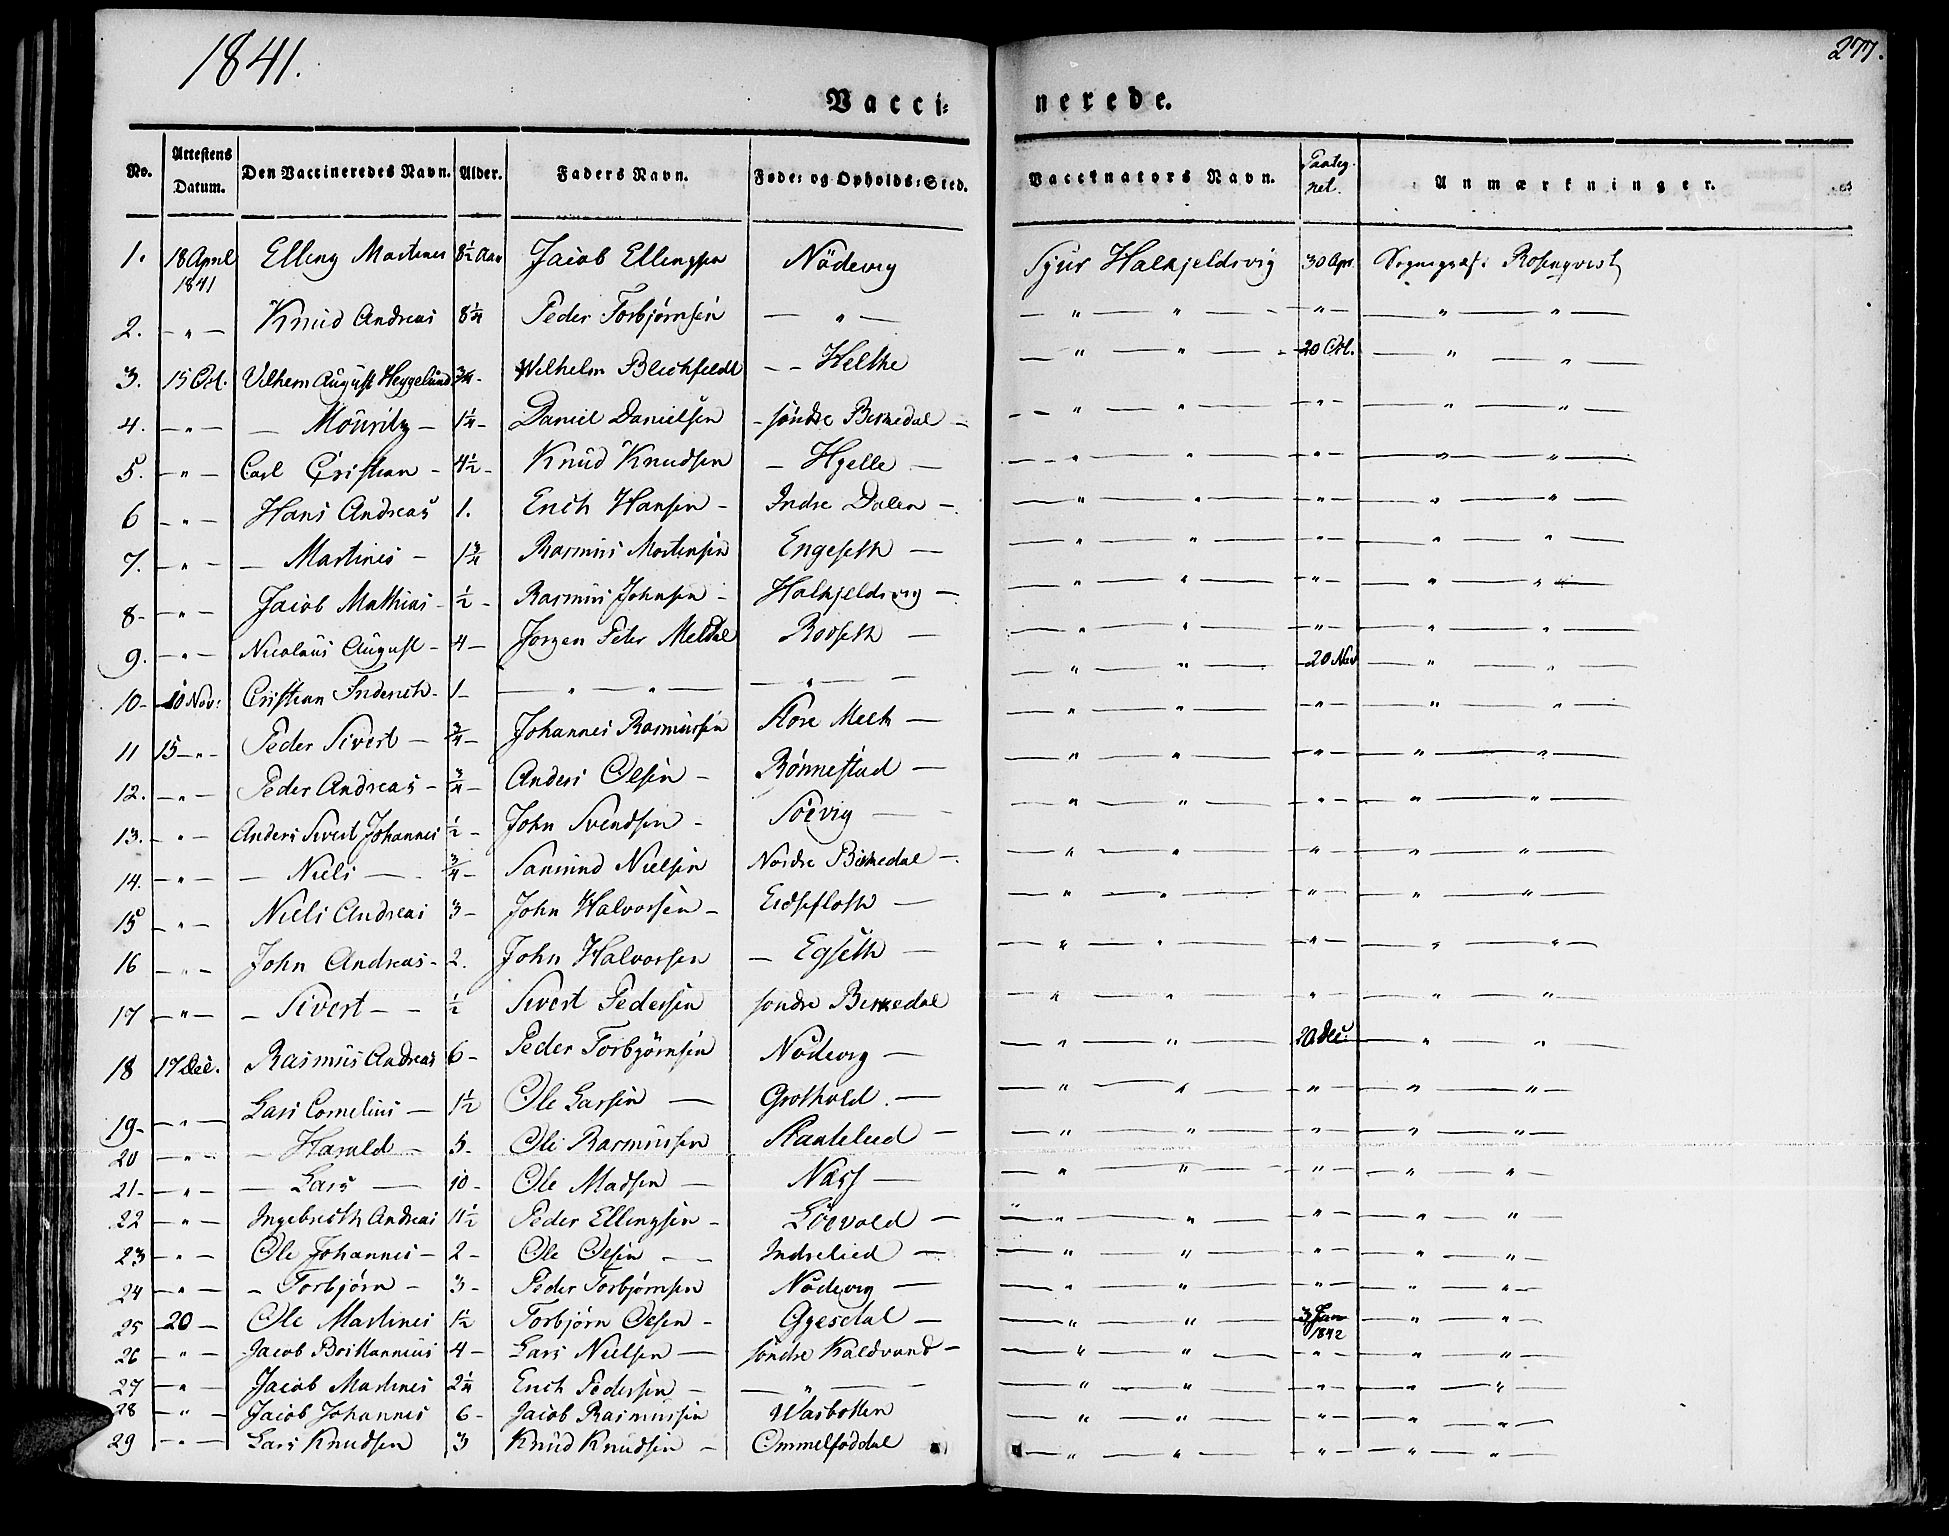 1841.
277.
Vacci= nerede.
No. Attestens Datum. Den Vaccineredes Navn. Alder. Faders Navn. Føde= og Opholds=Sted. Vaccinators Navn. Paateg. net. Anmærkninger.
1. 18 April 1841 Elling Martines 8½ Aar Jacob Ellingsen Nödevig Sjur Halkjeldsvig 30 Apr. Sognepræst Rosenqvist
2. — " — Knud Andreas 8¼ Peder Torbjørnsen — " — — " — " — — " — — " — " —
3. 15 Oct. Vilhem August Heygelund ¾ - Wilhelm Blichfeldt - - Helthe — " — " — 20 Oct. — " — " —
4. — " — — Mouritz — 1¼ - Daniel Danielsen - söndre Birkedal — — " — " — — " — — " — " —
5. — " — Carl Cristian - 4½ - Knud Knudsen — Hjelle — — " — " — — " — — " — " —
6 — " — Hans Andreas 1. Erich Hansen - Indre Dalen — — " — " — — " — — " — " —
7. — " — — Martines — 1¾ Rasmus Mortensen Engeseth — — " — " — — " — — " — " —
8- — " — Jacob Mathias - ½ - Rasmus Johnsen - Halkjeldsvig — — " — " — — " — — " — " —
9. — " — Nicolaus August - 4 — Jørgen Peter Meldal Rodseth — — " — " — — " — — " — " —
10- 10 Nov: Cristian Frderich - 1 - — " — " — — " — — — " — " — 20 Nov — " — " —
11 15 — " — Peder Sivert — ¾ - Johannes Rasmussen Store Melk — — " — " — — " — — " — " —
12. — " — Peder Andreas - ¾ - Anders Olsen - Rönnestad — — " — " — — " — — " — " —
13. — " — Anders Sivert Johannes ½ - John Svendsen - Söevig — — " — " — — " — — " — " —
14. — " — — Niels — ¾ - Samund Nielsen Nordre Birkedal - — " — " — — " — — " — " —
15 — " — Niels Andreas 3 - John Halvorsen - Eidsefloth — — " — " — — " — — " — " —
16 — " — John Andreas - 2. John Halvorsen — Egseth — — " — " — — " — — " — " —
17 — " — — Sivert — — ½ Sivert Pedersen söndre Birkedal — " — " — " — " — " —
18 17 Dec. Rasmus Andreas 6 - Peder Torbjörnsen Nödevig — — " — " — 20 Dec: — " — " —
19- — " — Lars Cornelius — 1½ Ole Larsen — Grothold. — — " — " — — " — — " — " —
20 — " — — Harald — 5. Ole Rasmussen — — " — " — — " — — " — " —
21- — " — — Lars — 10 - Ole Madsen — — — " — " — — " — — " — " —
22 — " — Ingebrecth Andreas 11½ Peder Ellingsen - Löevold — — " — " — — " — — " — " —
23 — " — Ole Johannes - 2 - Ole Olsen — — Indrelied — — " — " — — " — — " — " —
24 — " — — Torbjørn — 3 - Peder Torbjørnsen Nödevig — — " — " — — " — — " — " —
25 20 — Ole Martines 1½ Torbjørn Olsen - Gyesdal — — " — " — 3 Jan 1842 — " — " —
26 — " — Jacob Brittannius 4 - Lars Nielsen — söndre Kaldvand — — " — " — — " — — " — " —
27 — " — Jacob Martines 2¼ Erich Pedersen — — " — — — " — " — — " — — " — " —
28 — " — Jacob Johannes 6 - Jacob Rasmussen Wasbotten — " — " — — " — — " — " —
29 — " — Lars Knudsen 3 Knud Knudsen — Ommelfoddal — " — " — — " — — " — " —